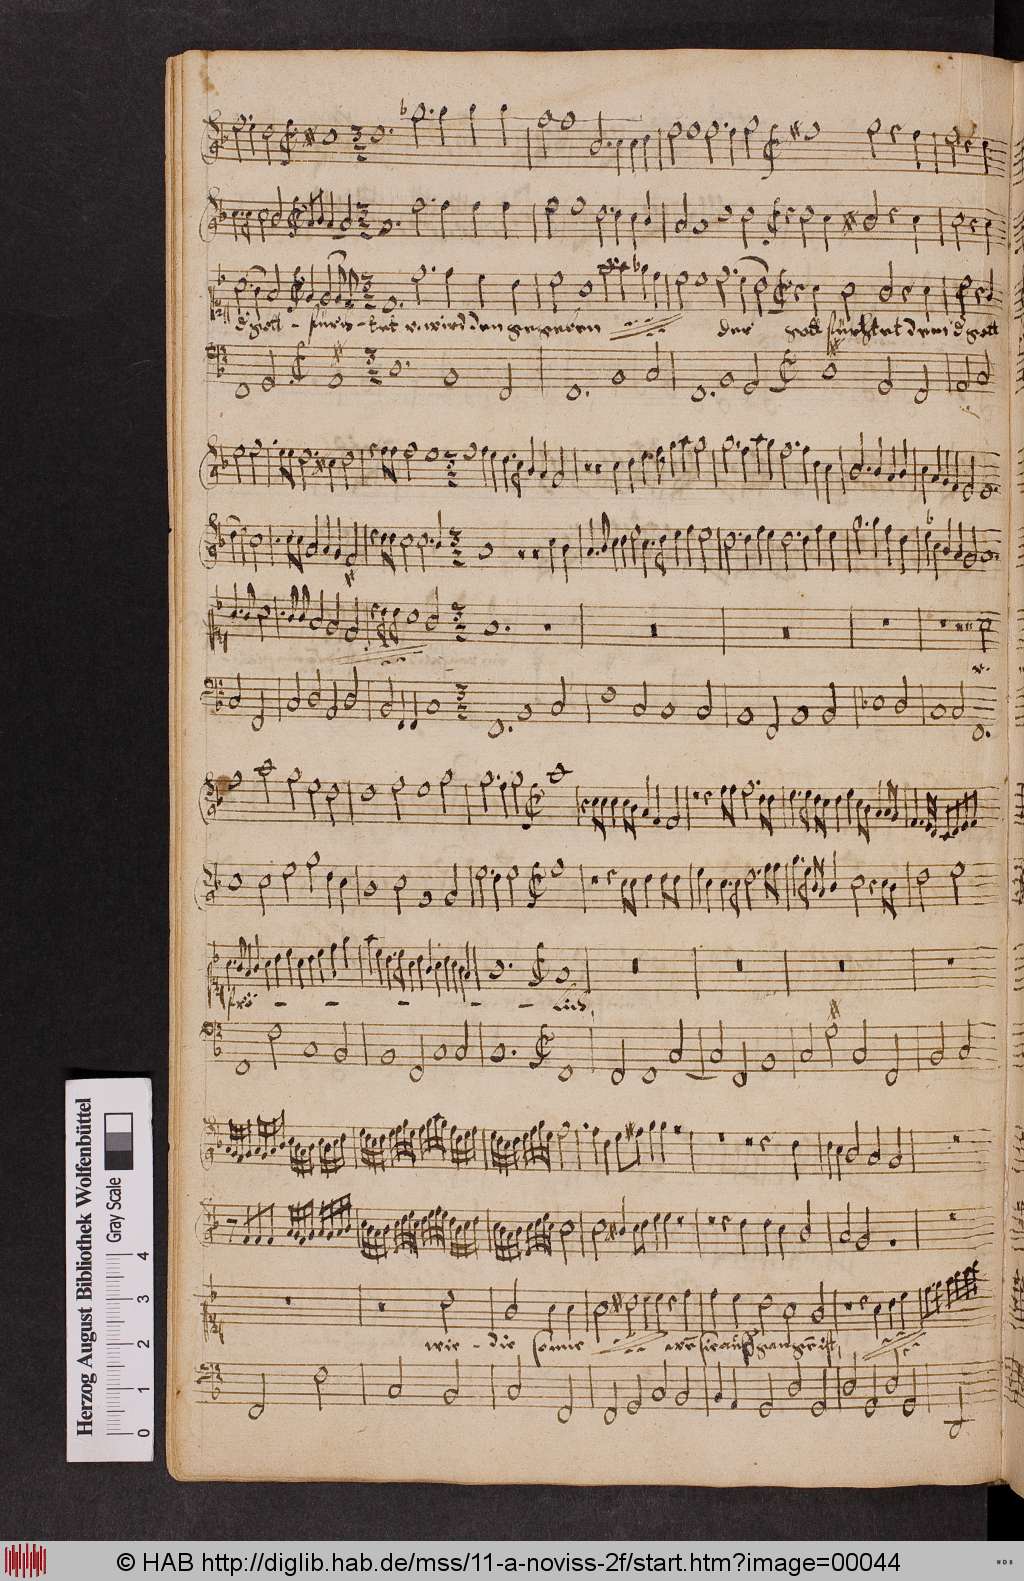 d'gott - fürch - tet, u. wird den gegeben der gott fürchtet dem d' gott
u.
frö - - - - - lich,
wie - die sonne wen sie auffgangen ist,
Herzog August Bibliothek Wolfenbüttel
Gray Scale
0 1 2 3 4
© HAB http://diglib.hab.de/mss/11-a-noviss-2f/start.htm?image=00044